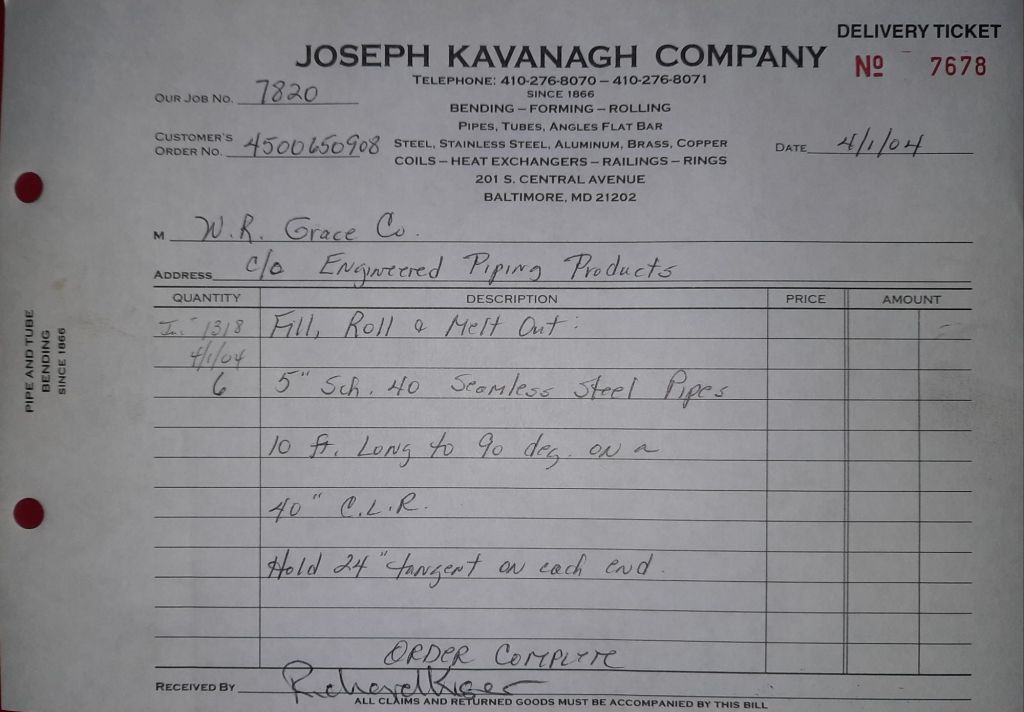 DELIVERY TICKET
JOSEPH KAVANAGH COMPANY
Nº 7678
TELEPHONE: 410-276-8070 – 410-276-8071
SINCE 1866
OUR JOB NO. 7820
BENDING – FORMING – ROLLING
PIPES, TUBES, ANGLES FLAT BAR
CUSTOMER'S ORDER NO. 4500650908
STEEL, STAINLESS STEEL, ALUMINUM, BRASS, COPPER
DATE 4/1/04
COILS – HEAT EXCHANGERS – RAILINGS – RINGS
201 S. CENTRAL AVENUE
BALTIMORE, MD 21202
M W.R. Grace Co.
ADDRESS c/o Engineered Piping Products
QUANTITY DESCRIPTION PRICE AMOUNT
1318 Fill, Roll & Melt Out:
4/1/04
6 5" Sch. 40 Seamless Steel Pipes
10 ft. Long to 90 deg. on a
40" C.L.R.
Hold 24" tangent on each end.
ORDER COMPLETE
RECEIVED BY Richard
ALL CLAIMS AND RETURNED GOODS MUST BE ACCOMPANIED BY THIS BILL
PIPE AND TUBE
BENDING
SINCE 1866